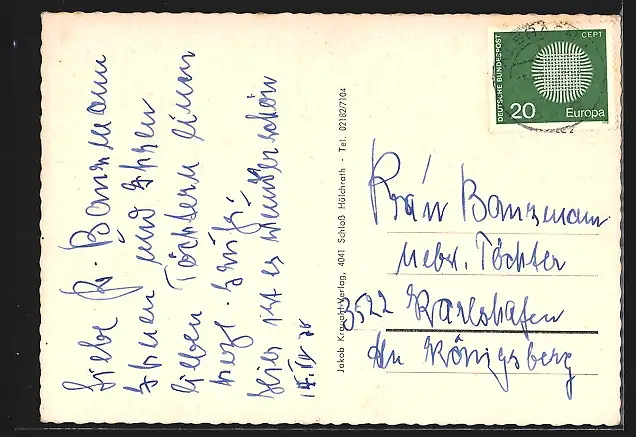 Liebe Fr. Banzmann
Ihnen und Ihren
lieben Töchtern einen
herzl. Gruß!
Hier ist es wunderschön
Jakob Krapohl-Verlag, 4041 Schloß Hülchrath - Tel. 02182/7104
DEUTSCHE BUNDESPOST
CEPT
20 Europa
Banzmann
nebst. Töchter
3522 Karlshafen
Am Königsberg